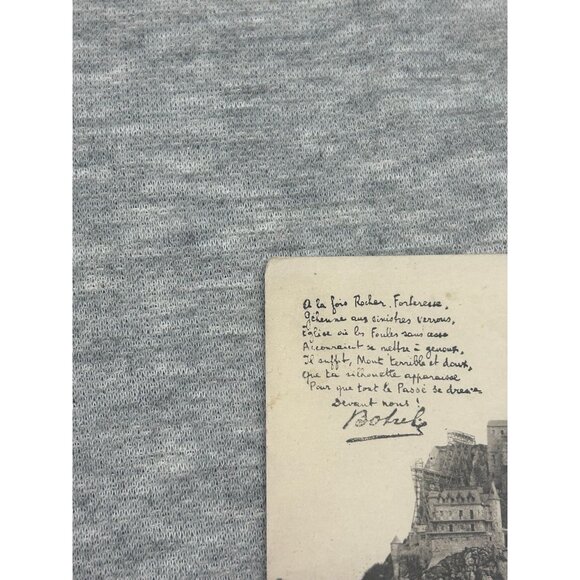 A la fois Rocher, Forteresse,
Géhenne aux sinistres verrous,
Église où les Foules sans cesse
Accouraient se mettre à genoux,
Il suffit, Mont terrible et doux,
Que ta silhouette apparaisse
Pour que tout le Passé se dresse
Devant nous !
Botrel